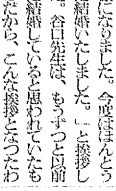 になりました。今度はほんとう
結婚いたしました。」と挨拶し
た。谷口先生は、もうずつと以前
結婚しているると思われていたも
だから、こんな挨拶となつたわ